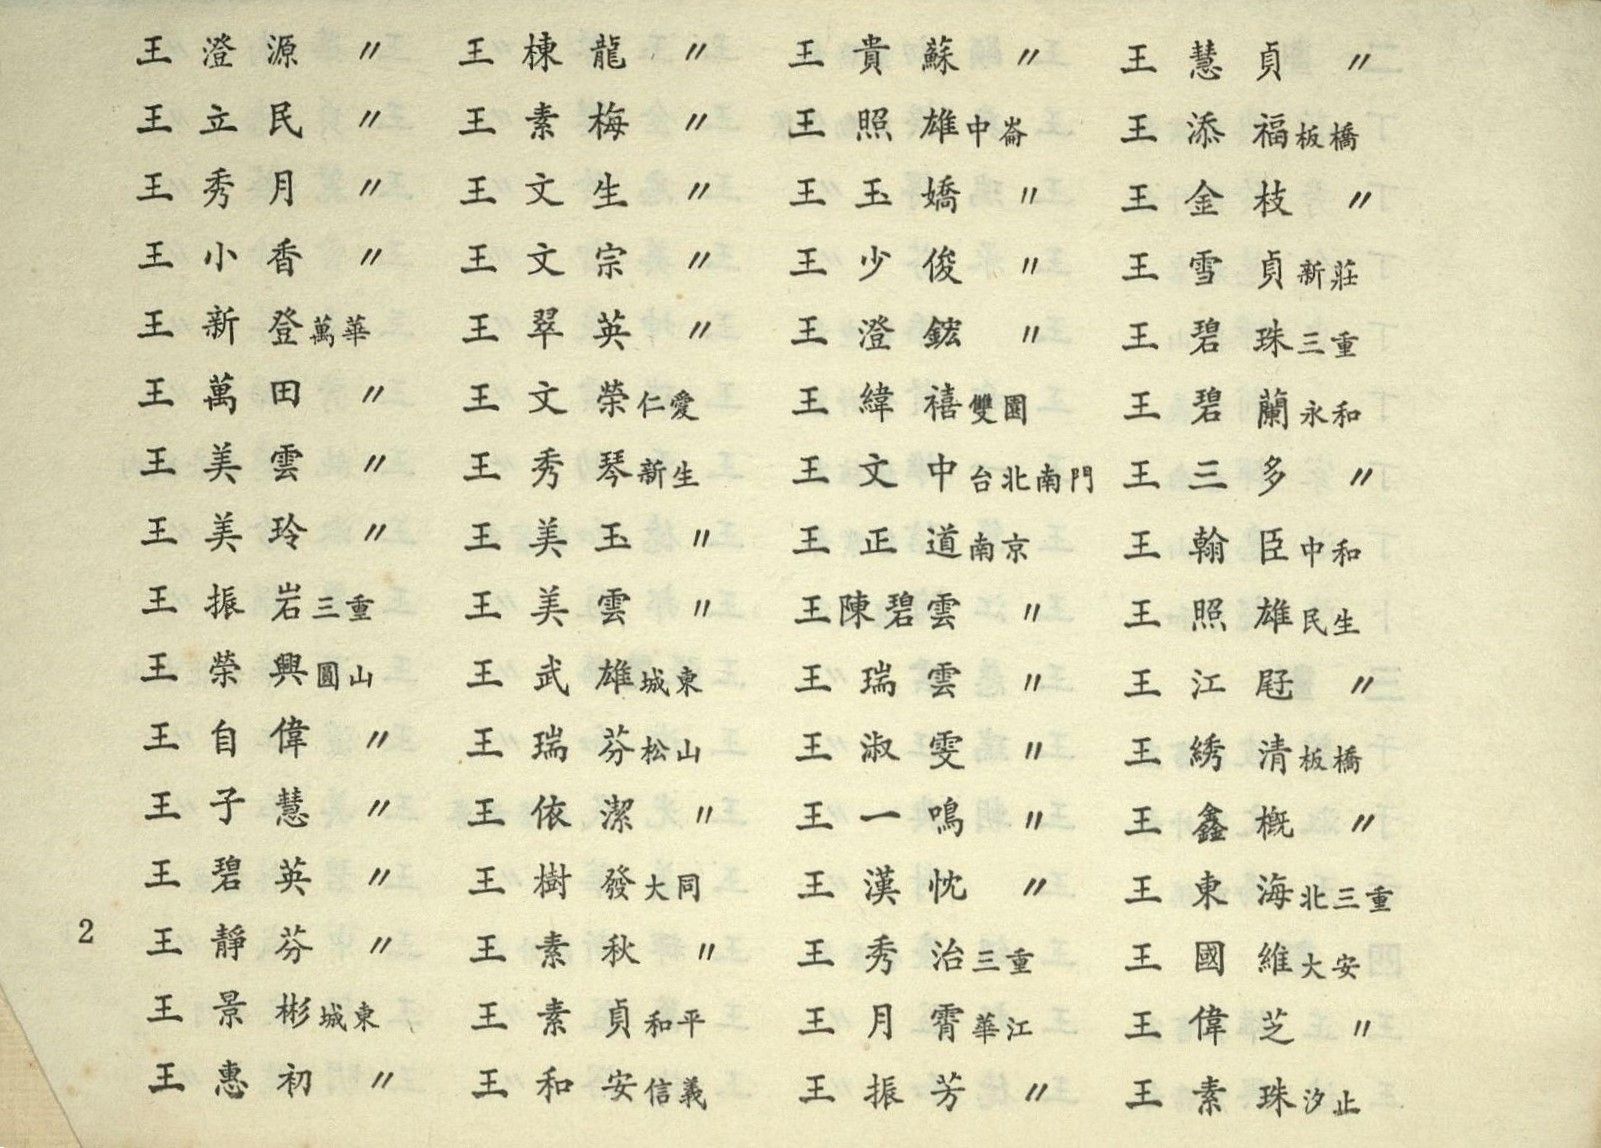 王澄源 〃
王立民 〃
王秀月 〃
王小香 〃
王新登 萬華
王萬田 〃
王美雲 〃
王美玲 〃
王振岩 三重
王榮興 圓山
王自偉 〃
王子慧 〃
王碧英 〃
王靜芬 〃
王景彬 城東
王惠初 〃
王棟龍 〃
王素梅 〃
王文生 〃
王文宗 〃
王翠英 〃
王文榮 仁愛
王秀琴 新生
王美玉 〃
王美雲 〃
王武雄 城東
王瑞芬 松山
王依潔 〃
王樹發 大同
王素秋 〃
王素貞 和平
王和安 信義
王貴蘇 〃
王照雄 中崙
王玉嬌 〃
王少俊 〃
王澄鋐 〃
王緯禧 雙園
王文中 台北南門
王正道 南京
王陳碧雲 〃
王瑞雲 〃
王淑雯 〃
王一鳴 〃
王漢忱 〃
王秀治 三重
王月霄 華江
王振芳 〃
王慧貞 〃
王添福 板橋
王金枝 〃
王雪貞 新莊
王碧珠 三重
王碧蘭 永和
王三多 〃
王翰臣 中和
王照雄 民生
王江 〃
王綉清 板橋
王鑫概 〃
王東海 北三重
王國維 大安
王偉芝 〃
王素珠 汐止
2